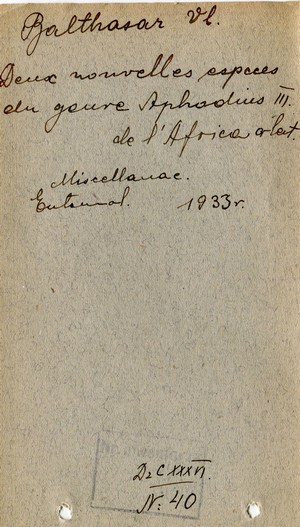 Balthasar Vl.
Deux nouvelles especes
du genre Aphodius III.
de l'Africa
Miscellanae.
Entomol. 1933 r.
Dz CXXXVI
N: 40